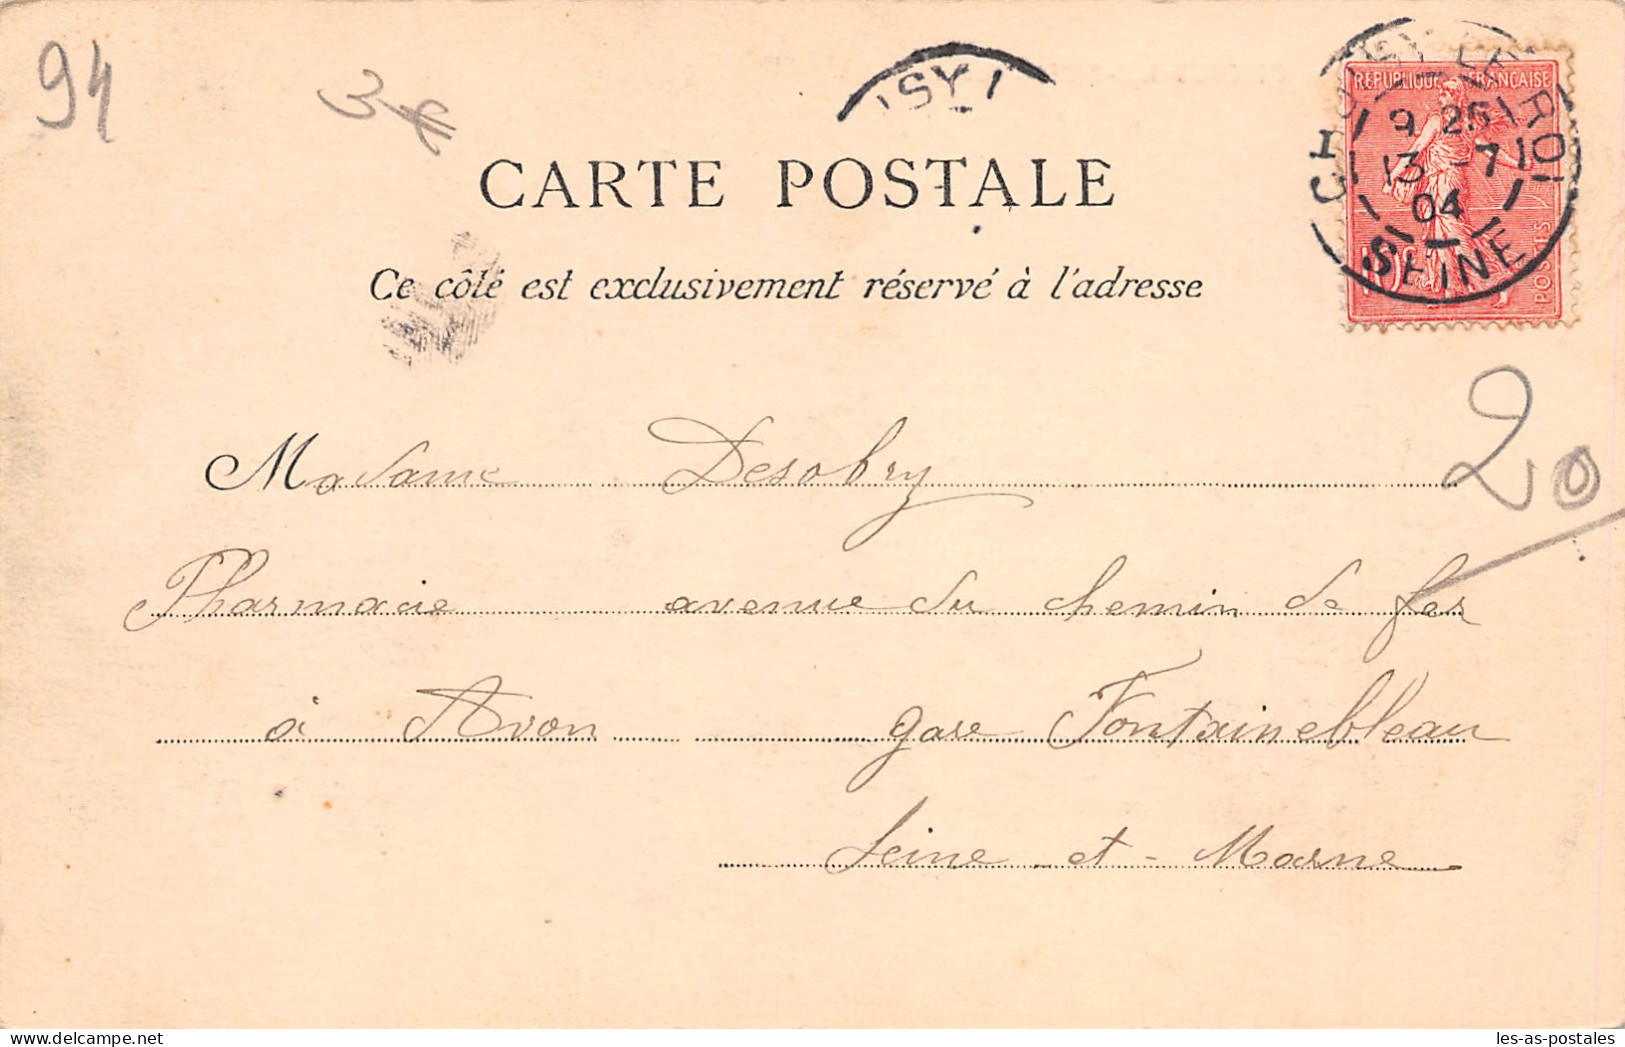 94
3 €
REPUBLIQUE FRANÇAISE
CHOISY LE ROI
9 25
13 -7
04
SEINE
10c
POSTES
CARTE POSTALE
Ce côté est exclusivement réservé à l'adresse
20
Madame Desobry
Pharmacie avenue du chemin de fer
à Avon gare Fontainebleau
Seine-et-Marne
les-as-postales